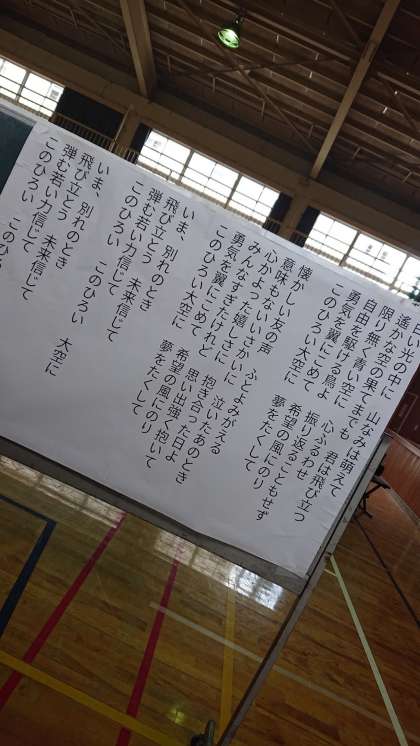 白い光の中に　山なみは萌えて
遥かな空の果てまでも　君は飛び立つ
限り無く青い空に　心ふるわせ
自由を駆ける鳥よ　振り返ることもせず
勇気を翼にこめて　希望の風にのり
このひろい大空に　夢をたくして
懐かしい友の声　ふとよみがえる
意味もないいさかいに　泣いたあのとき
心かよった嬉しさに　抱き合った日よ
みんなすぎたけれど　思い出強く抱いて
勇気を翼にこめて　希望の風にのり
このひろい大空に　夢をたくして
いま、別れのとき
飛び立とう　未来信じて
弾む若い力信じて
このひろい　このひろい　大空に
いま、別れのとき
飛び立とう　未来信じて
弾む若い力信じて
このひろい　このひろい　大空に